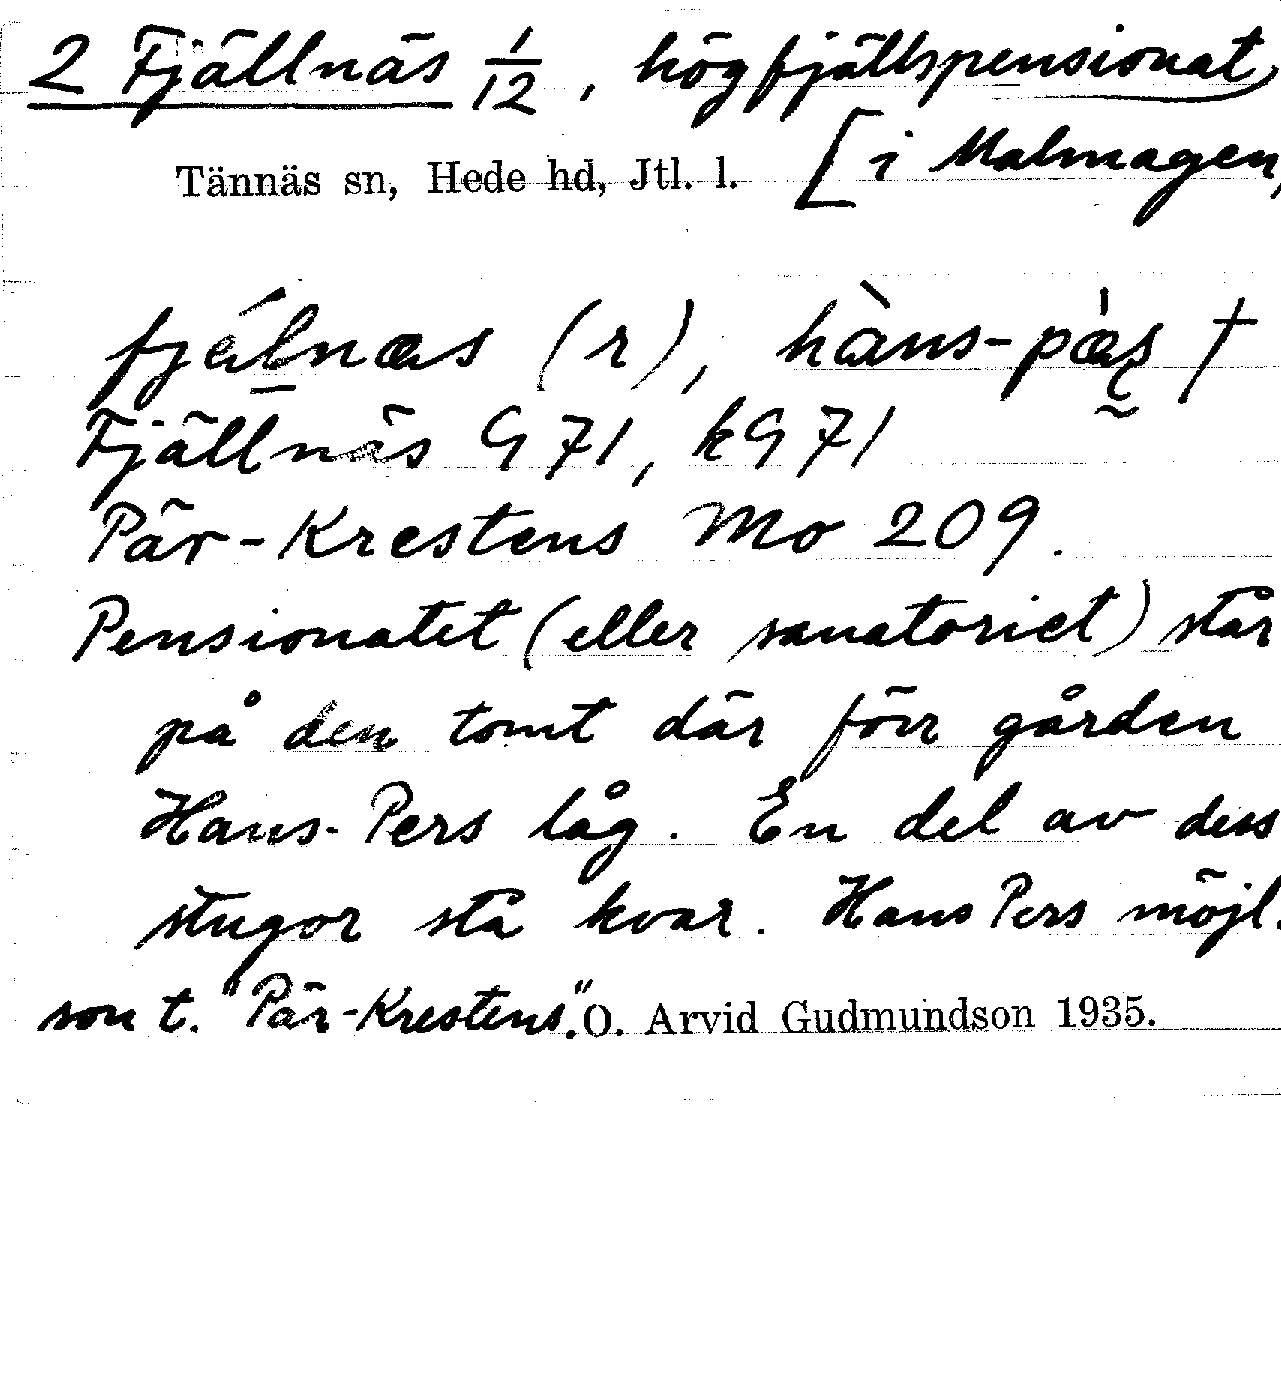 2 Fjällnäs 1/12, högfjällspensionat
Tännäs sn, Hede hd, Jtl. l. [i Malmagen,
fjälnæs (r), hàns-pæ̀ʂ †
Fjällnäs G 71, kG 71
Pär-Krestens Mo 209.
Pensionatet (eller sanatoriet) står
på den tomt där förr gården
Hans-Pers låg. En del av dess
stugor stå kvar. Hans Pers möjl.
son t. "Pär-Krestens". O. Arvid Gudmundson 1935.